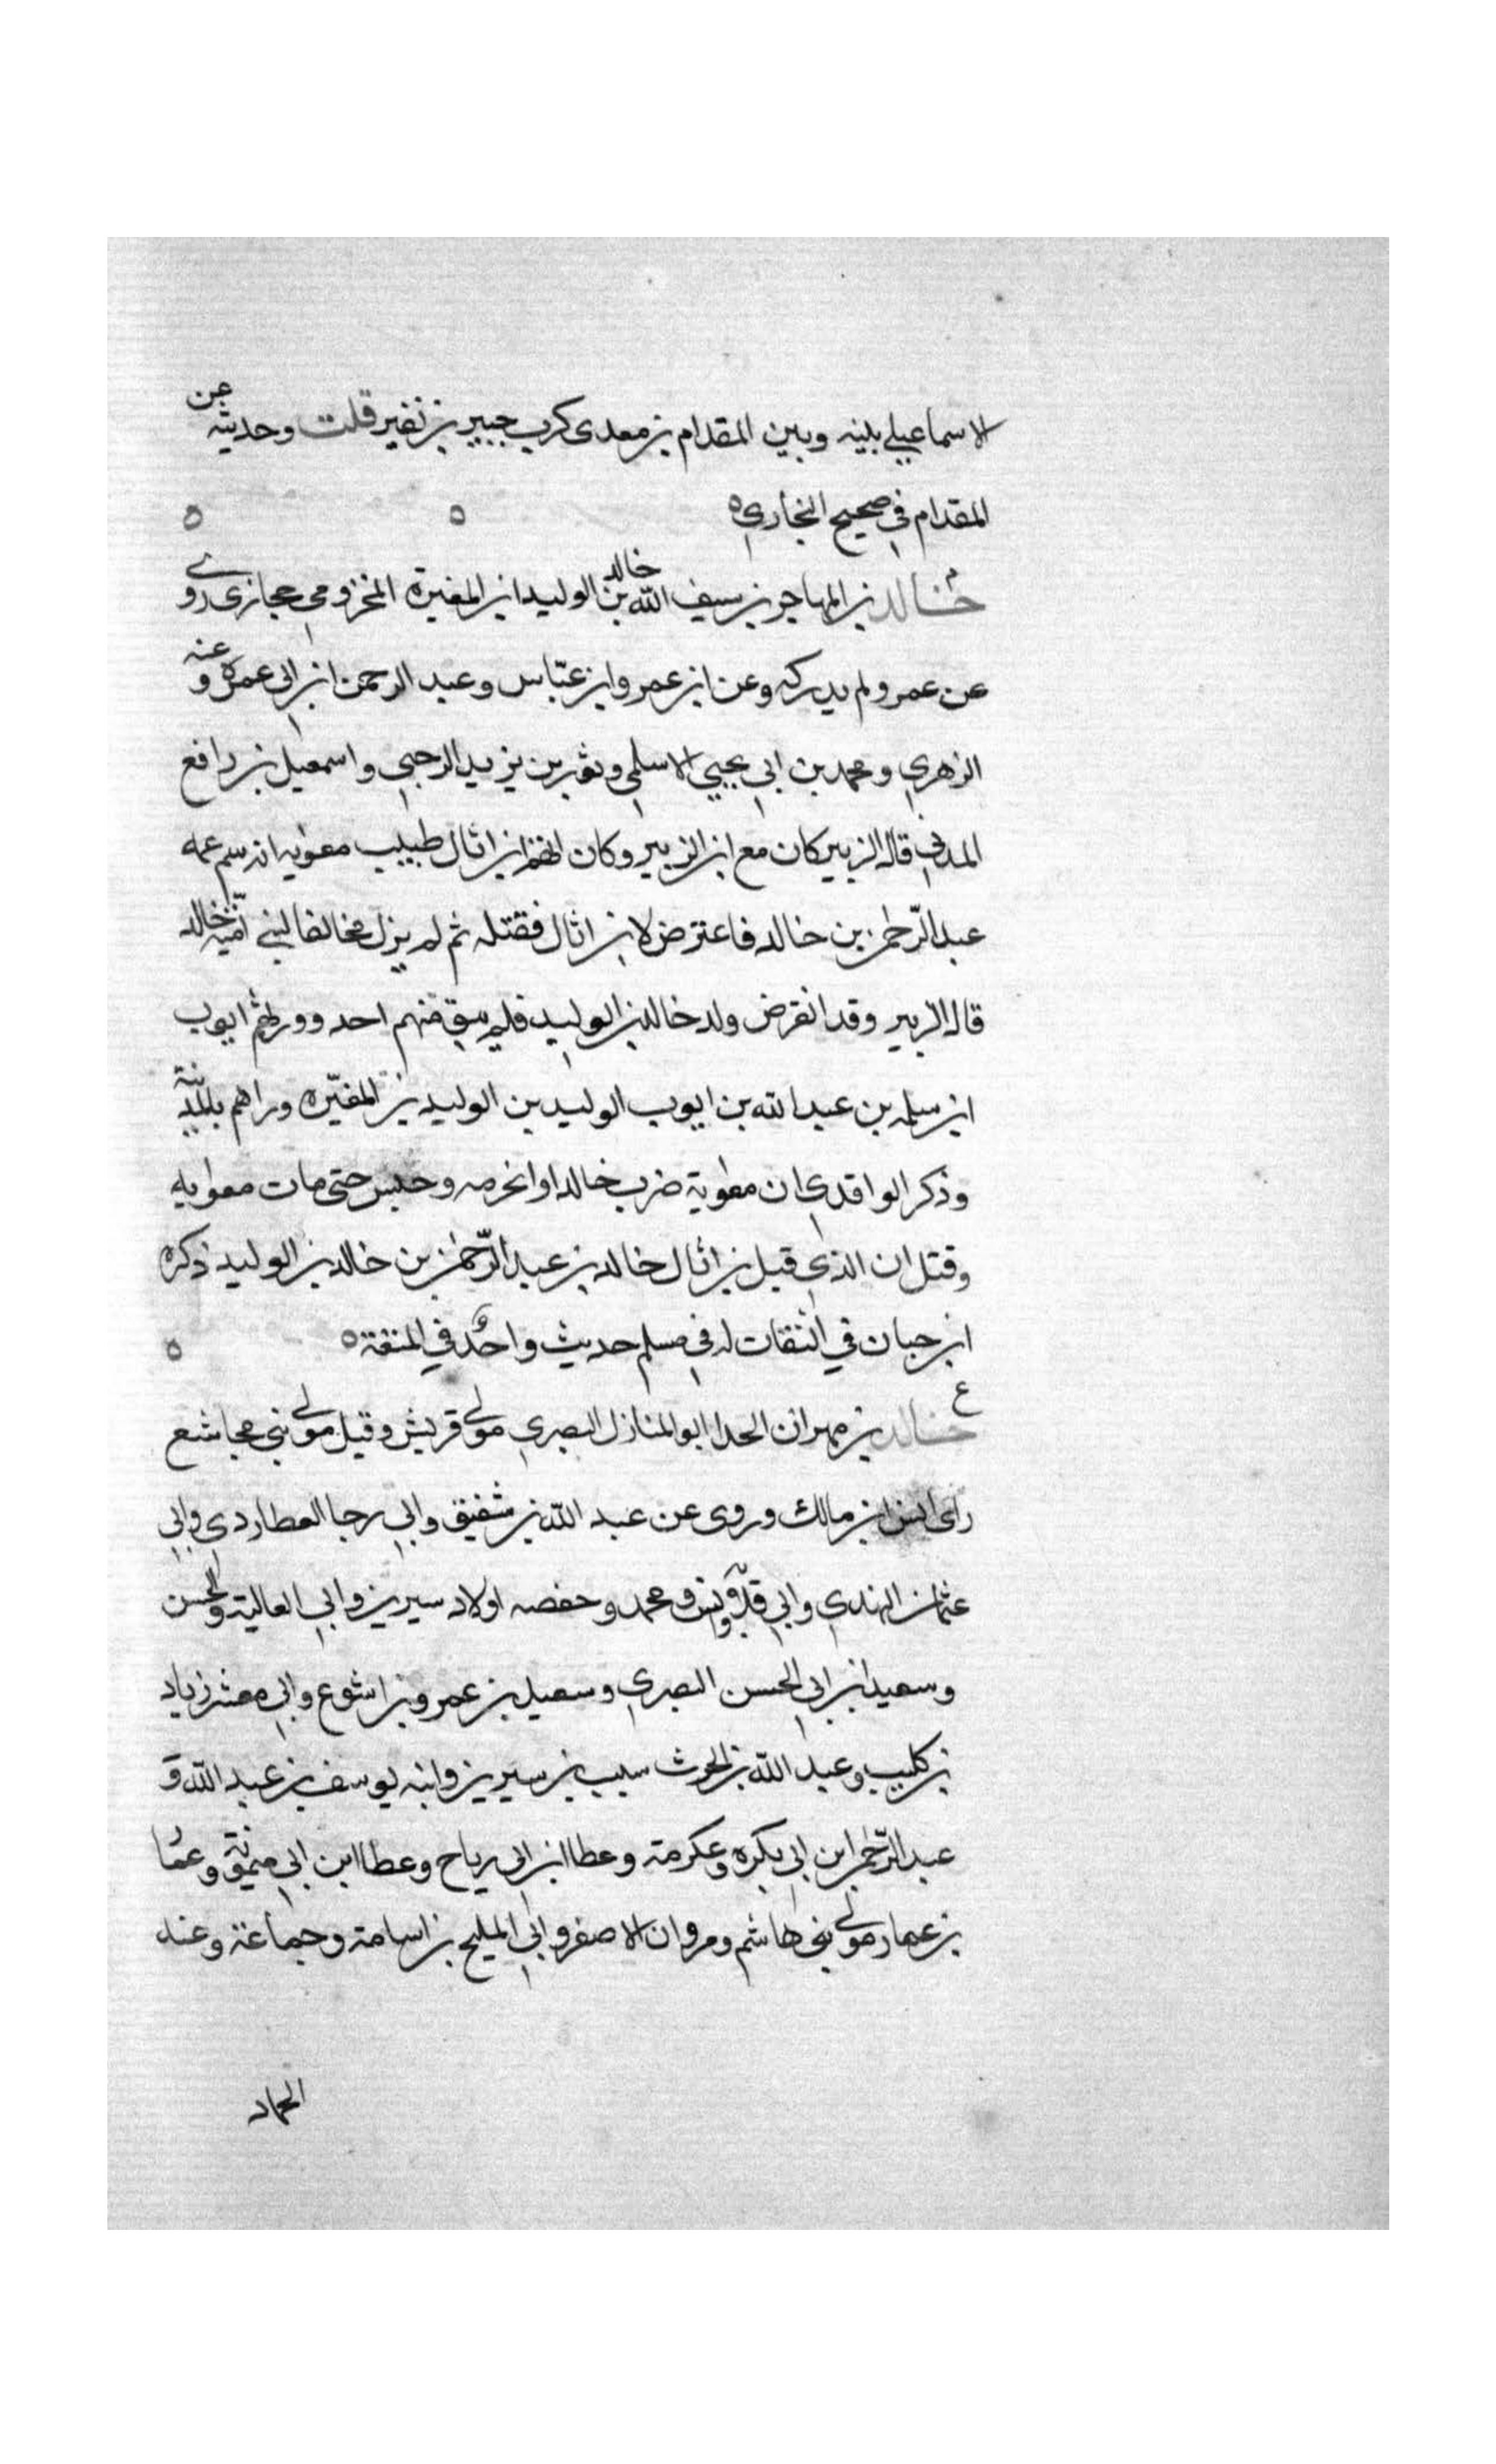 الاسماعيلي بينه وبين المقدام بن معدى كرب جبير بن نفير قلت وحديثه عن
المقدام في صحيح البخاري ه ه ه
م خالد بن المهاجر بن سيف الله خالد بن الوليد ابن المغيرة المخزومي حجازى روى
عن عمر ولم يدركه وعن ابن عمر وابن عباس وعبد الرحمن ابن ابي عمرة وعنه
الزهري ومحمد بن ابي يحيي الاسلمي وثور بن يزيد الرحبي واسمعيل بن رافع
المدني قال الزبير كان مع ابن الزبير وكان اتهم ابن اثال طبيب معوية انه سم عمه
عبد الرحمن بن خالد فاعترض لابن اثال فقتله ثم لم يزل مخالفا لبني امية خالد
قال الزبير وقد انقرض ولد خالد بن الوليد فلم يبق منهم احد وورثهم ايوب
ابن سلمه بن عبد الله بن ايوب الوليد بن الوليد بن المغيره وراهم بالمدينة
وذكر الواقدي ان معوية ضرب خالدا واغرمه وحبس حتى مات معوية
وقتل ان الذي قبل بن اثال خالد بن عبد الرحمن بن خالد بن الوليد ذكره
ابن حبان في الثقات له في مسلم حديث واحد في المتعة ه ه
ع خالد بن مهران الحدا ابو المنازل البصري مولى قريش وقيل مولى بني مجاشع
راى انس ابن مالك وروى عن عبد الله بن شفيق وابي رجا العطاردي وابي
عثمان النهدي وابي قلابة وانس ومحمد وحفصه اولاد سيرين وابي العالية والحسن
وسعيد ابن ابي الحسن البصري وسعيد بن عمرو بن اشوع وابي معشر زياد
بن كليب وعبد الله بن الحرث سيب بن سيرين وابنه يوسف بن عبد الله و
عبد الرحمن ابن ابي بكره وعكرمة وعطا ابن ابي رياح وعطا ابن ابي ميمونة وعما
بن عمار مولى بني هاشم ومروان الاصفر وابي المليح بن اسامة وجماعة وعنه
الحماد